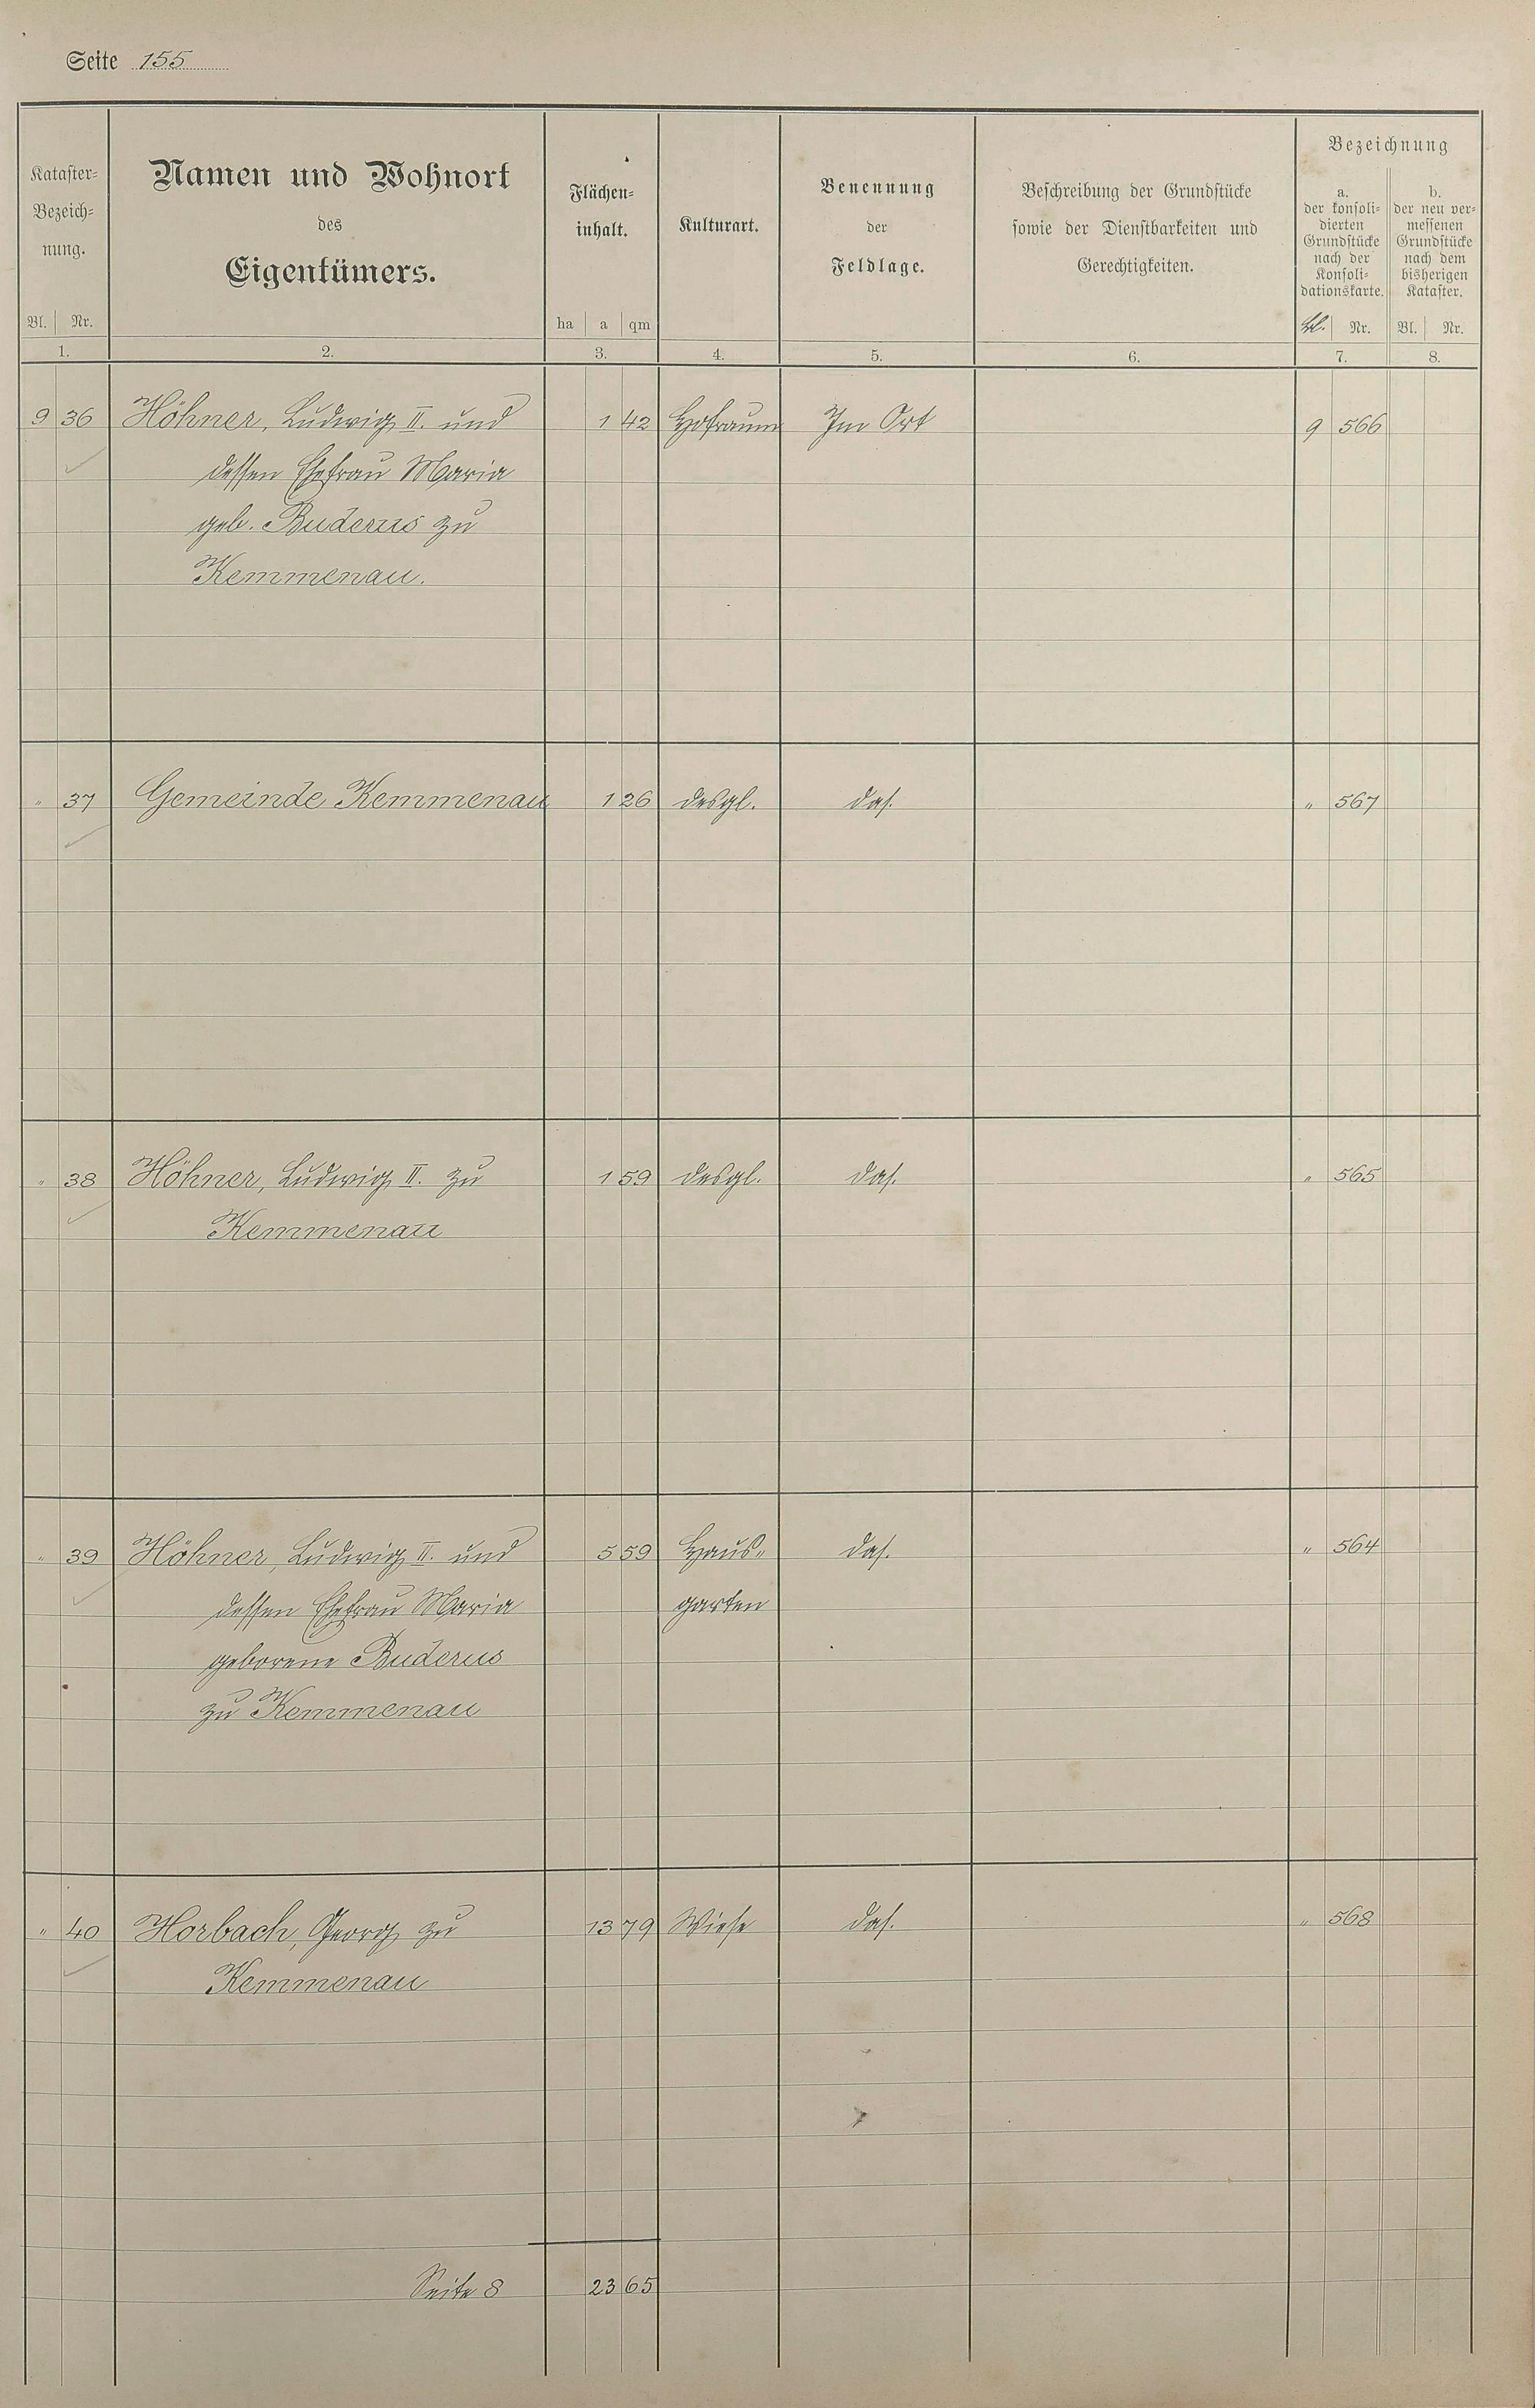 Seite 155
Kataster-
Bezeich-
nung.
Bl. Nr.
1.
Namen und Wohnort
des
Eigentümers.
2.
Flächen-
inhalt.
ha a qm
3.
Kulturart.
4.
Benennung
der
Feldlage.
5.
Beschreibung der Grundstücke
sowie der Dienstbarkeiten und
Gerechtigkeiten.
6.
Bezeichnung
a.
der konsoli-
dierten
Grundstücke
nach der
Konsoli-
dationskarte.
Bl. Nr.
7.
b.
der neu ver-
messenen
Grundstücke
nach dem
bisherigen
Kataster.
Bl. Nr.
8.
9 36 Höhner, Ludwig II. und 1 42 Hofraum Im Ort 9 566
dessen Ehefrau Maria
geb. Buderus zu
Kemmenau.
" 37 Gemeinde Kemmenau 1 26 desgl. das. " 567
" 38 Höhner, Ludwig II. zu 1 59 desgl. das. " 565
Kemmenau
" 39 Höhner, Ludwig II. und 5 59 Haus- das. " 564
dessen Ehefrau Maria garten
geborene Buderus
zu Kemmenau
" 40 Horbach, Georg zu 13 79 Wiese das. " 568
Kemmenau
Seite 8 23 65